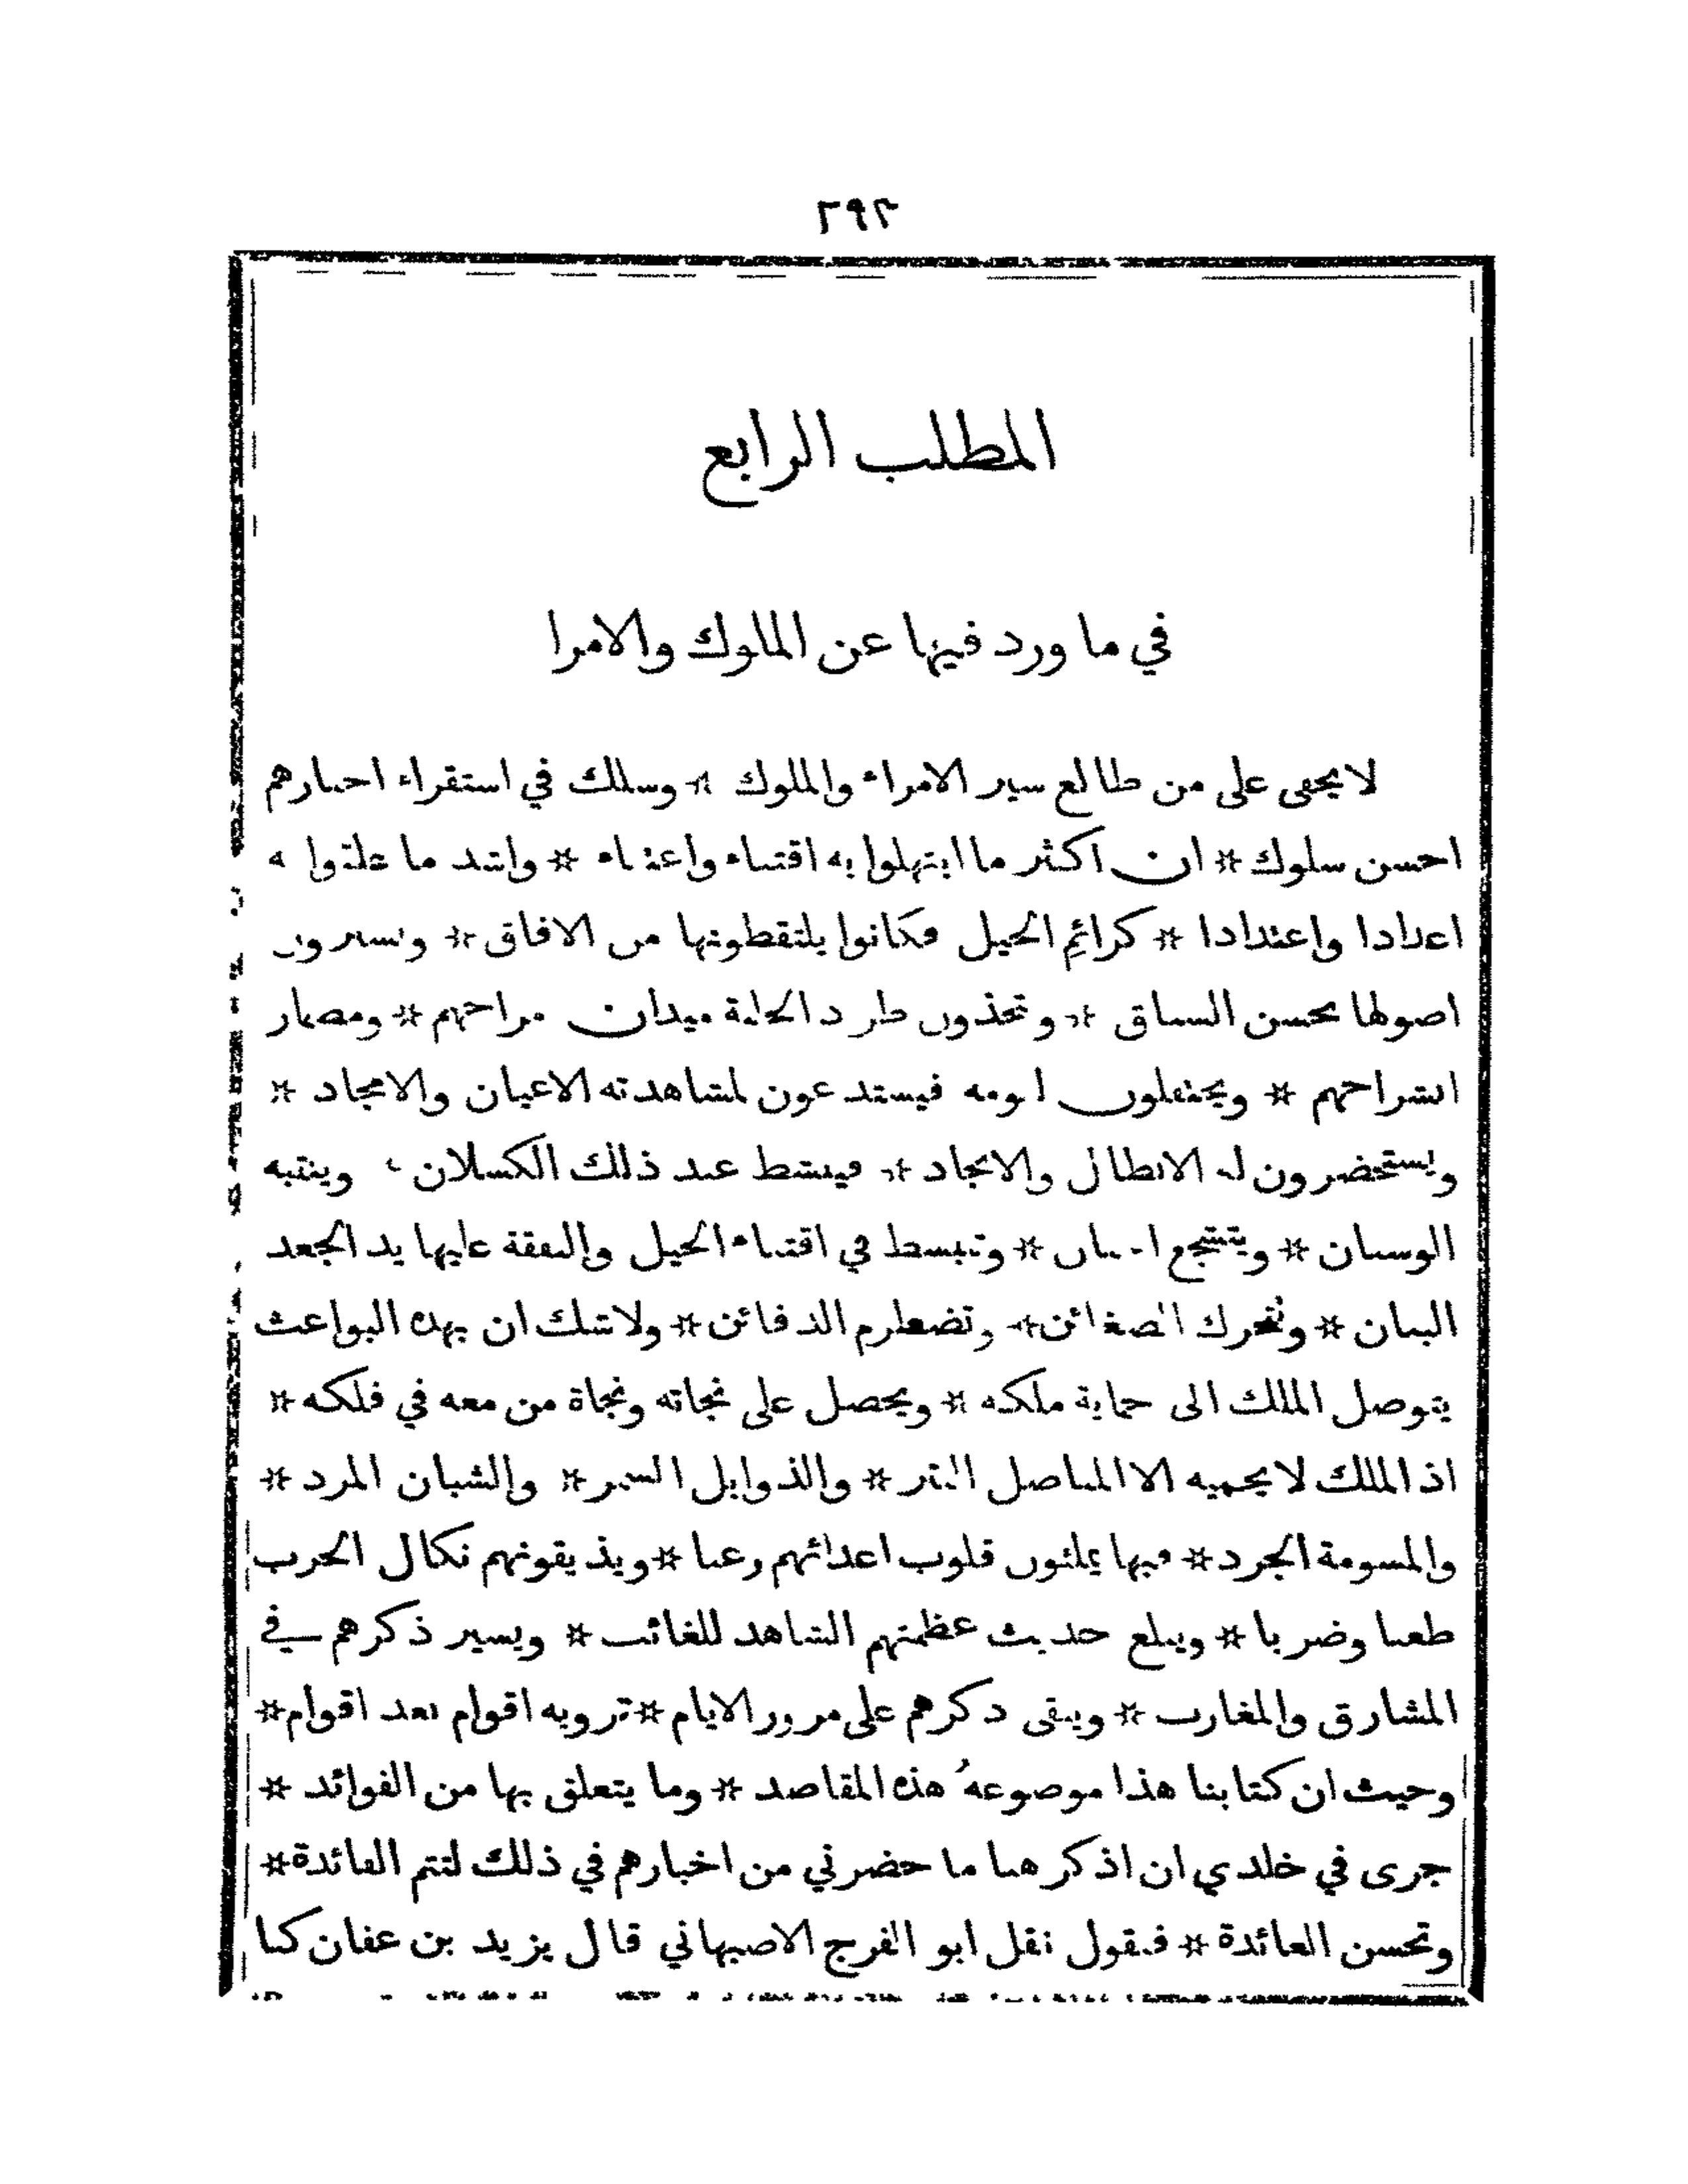 ٢٩٢
المطلب الرابع
في ما ورد فيها عن الملوك والامرا
لا يخفى على من طالع سير الامراء والملوك * وسلك في استقراء اخبارهم
احسن سلوك * ان اكثر ما ابتهلوا به اقتناء واعتناء * واشد ما علقوا به
اعدادا واعتدادا * كرائم الخيل فكانوا يلتقطونها من الافاق *
اصولها بحسن السباق * ويتخذون طرد الحلبة ميدان مراحهم * ومضمار
انشراحهم * ويحتفلون ليومه فيستدعون لمشاهدته الاعيان والامجاد *
ويستحضرون له الابطال والانجاد * فينشط عند ذلك الكسلان * وينتبه
الوسنان * ويتشجع * وتبسط في اقتناء الخيل والنفقة عليها يد الجعد
البنان * وتتحرك الضغائن * وتضطرم الدفائن * ولا شك ان بهذه البواعث
يتوصل الملك الى حماية ملكه * ويحصل على نجاته ونجاة من معه في فلكه *
اذ الملك لا يحميه الا المناصل البتر * والذوابل السمر * والشبان المرد *
والمسومة الجرد * فبها يملئون قلوب اعدائهم رعبا * ويذيقونهم نكال الحرب
طعنا وضربا * ويبلغ حديث عظمتهم الشاهد للغائب * ويسير ذكرهم في
المشارق والمغارب * ويبقى ذكرهم على مرور الايام * ترويه اقوام بعد اقوام *
وحيث ان كتابنا هذا موضوعهُ هذه المقاصد * وما يتعلق بها من الفوائد *
جرى في خلدي ان اذكر هنا ما حضرني من اخبارهم في ذلك لتتم الفائدة *
وتحسن العائدة * فنقول نقل ابو الفرج الاصبهاني قال يزيد بن عفان كنا